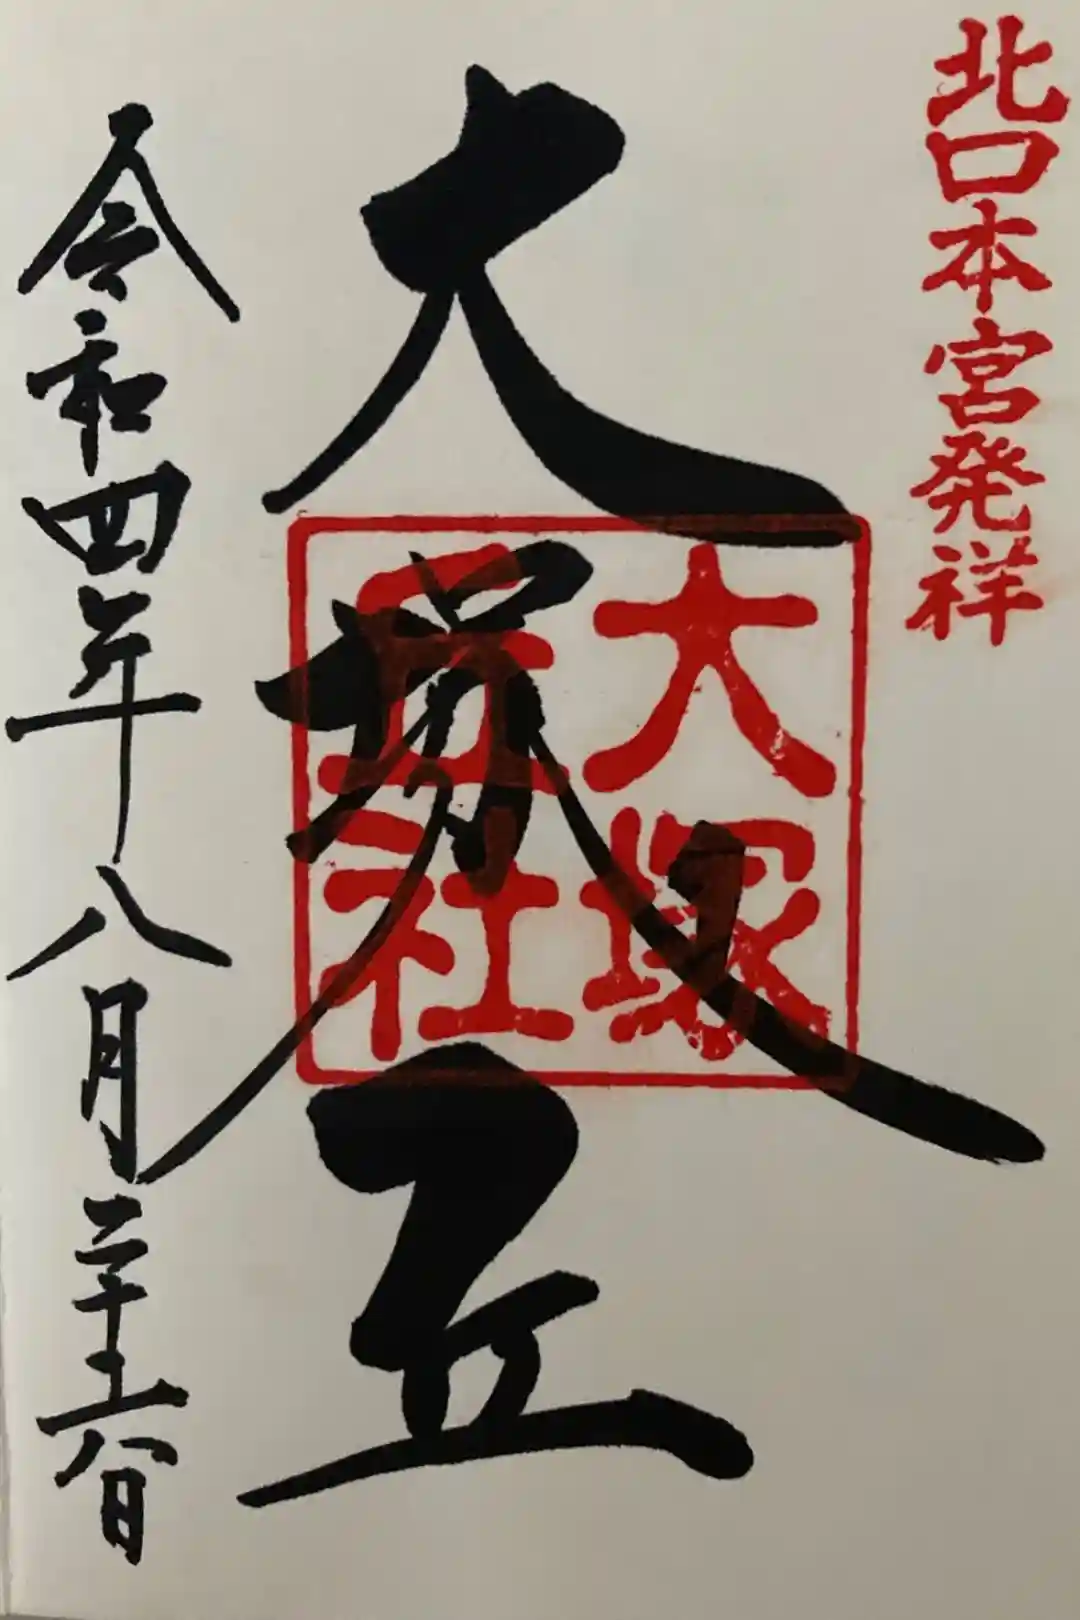 北口本宮発祥
大塚丘
大塚
丘社
令和四年八月二十六日